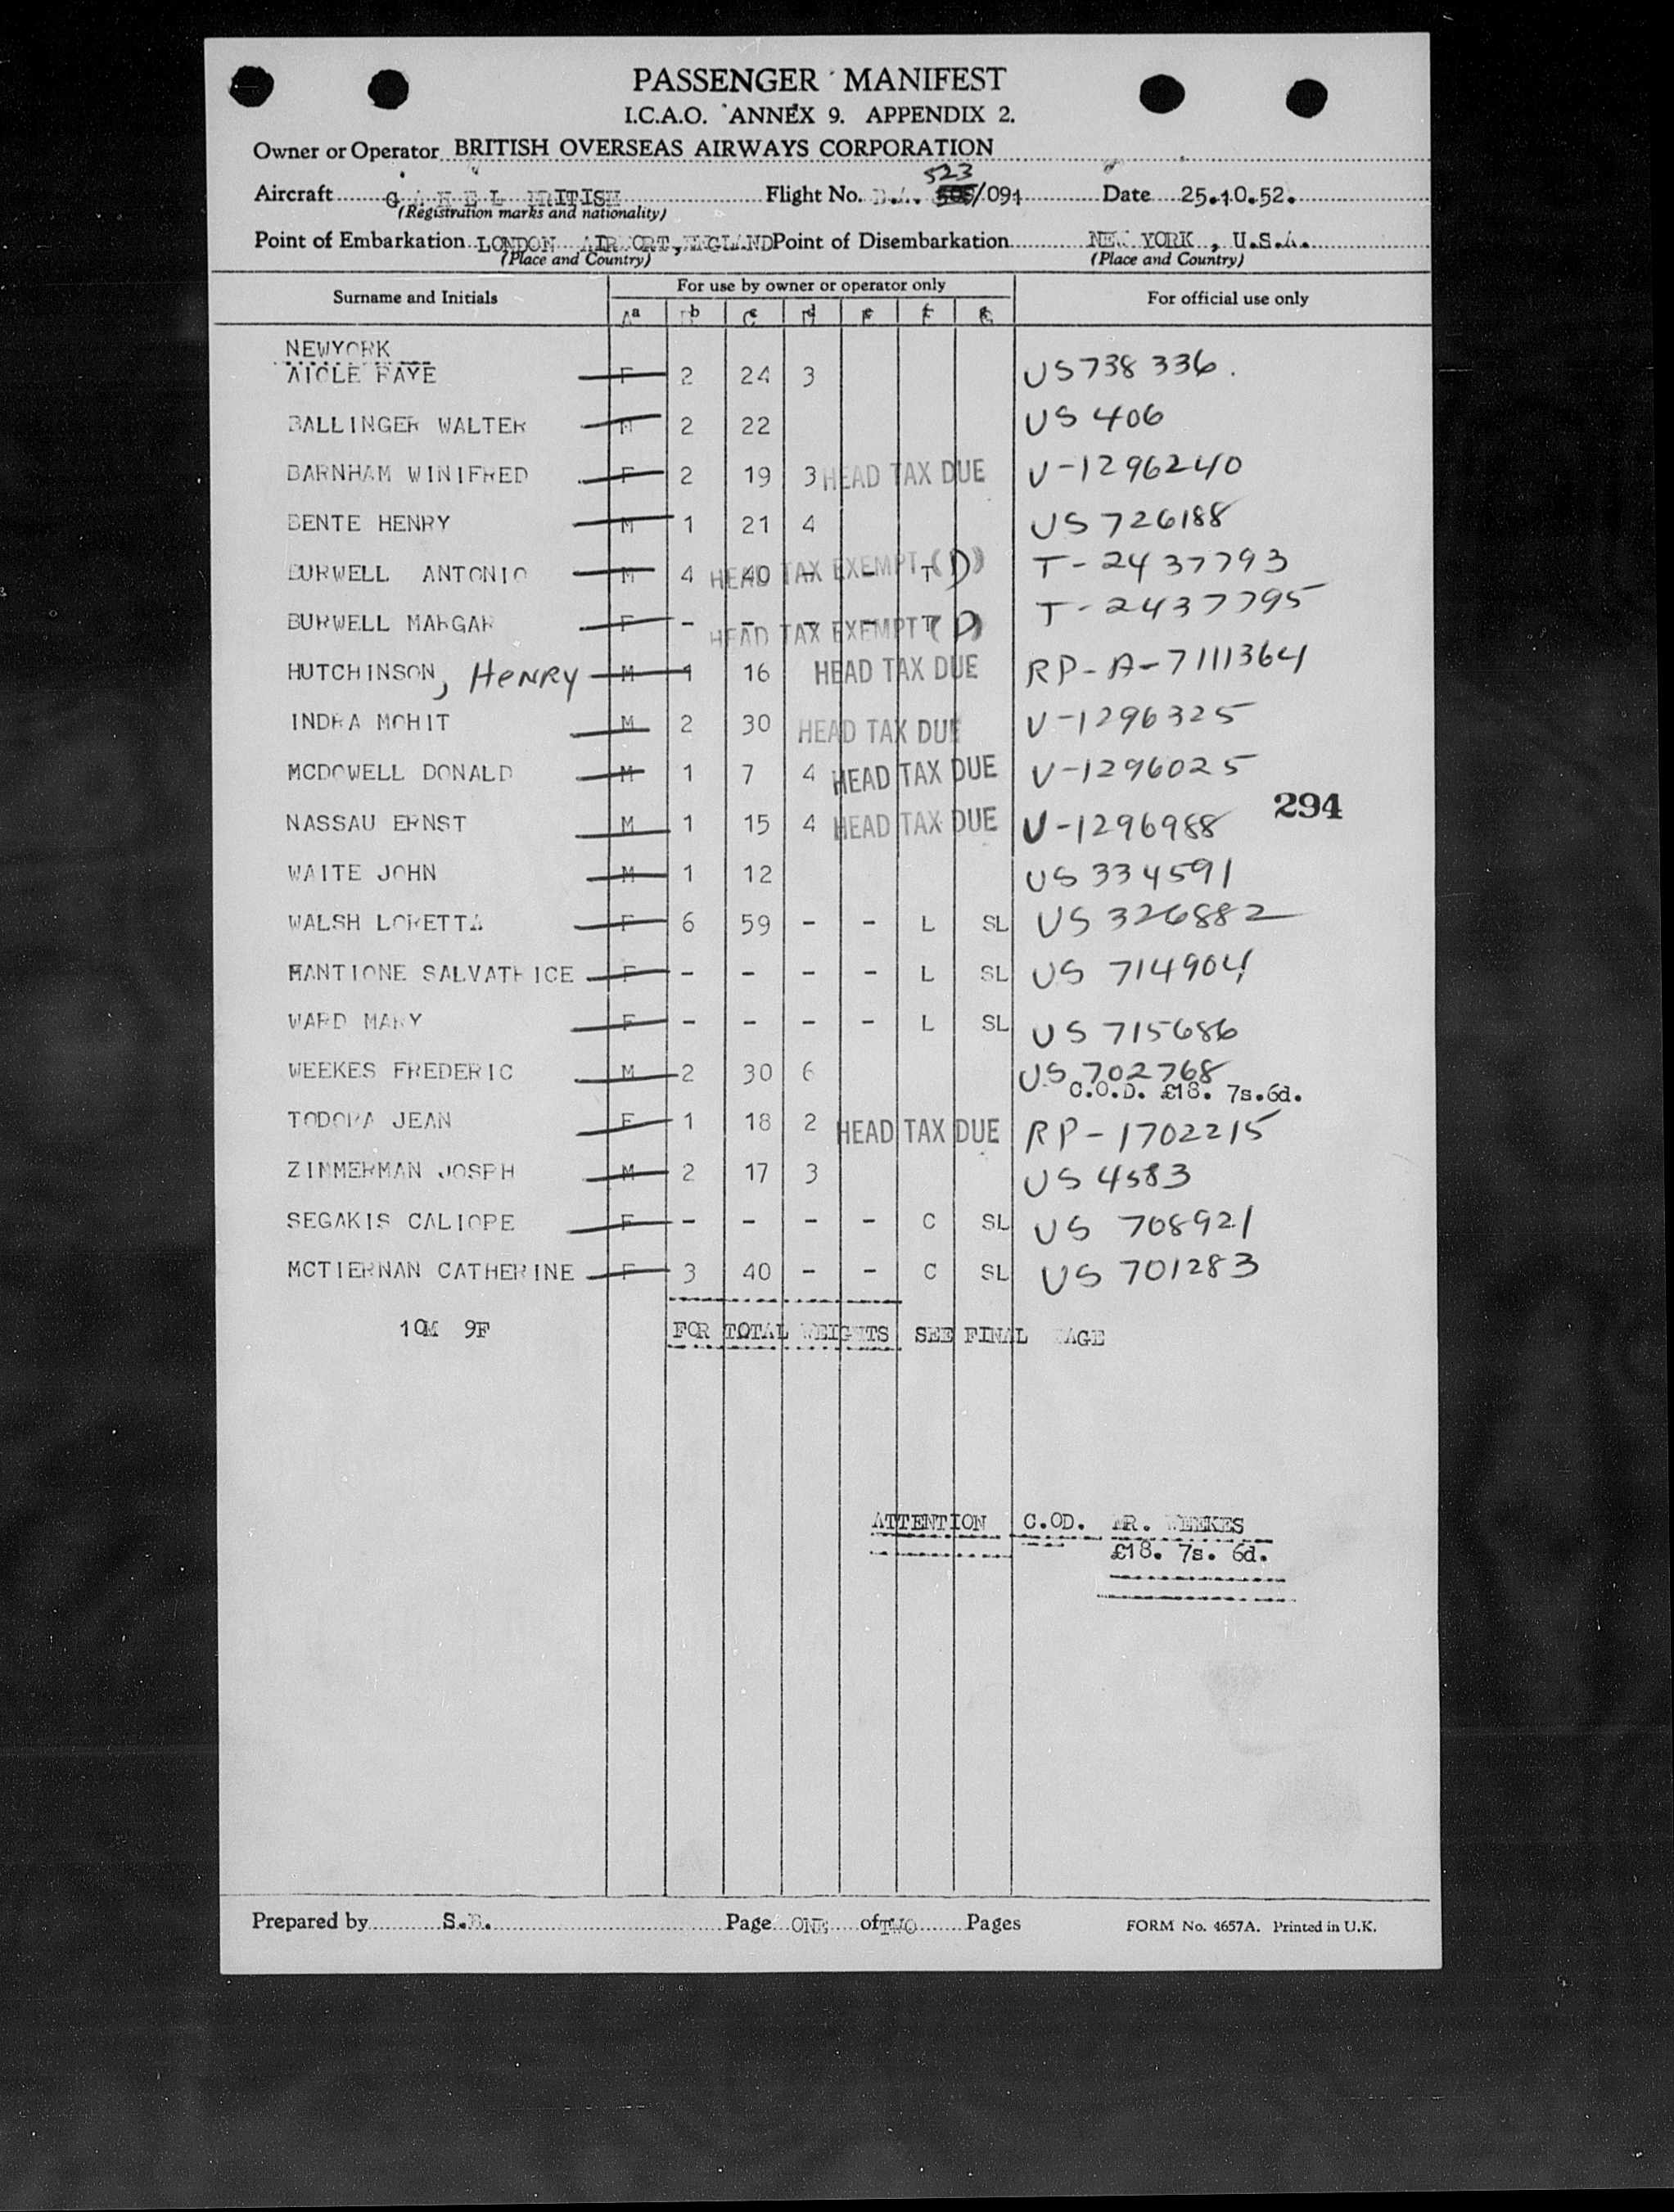 PASSENGER MANIFEST
I.C.A.O. ANNEX 9. APPENDIX 2.
Owner or Operator BRITISH OVERSEAS AIRWAYS CORPORATION
523
Aircraft BRITISH Flight No. B.A. /091 Date 25.10.52.
(Registration marks and nationality)
Point of Embarkation LONDON AIRPORT, ENGLAND Point of Disembarkation NEW YORK , U.S.A.
(Place and Country) (Place and Country)
Surname and Initials For use by owner or operator only For official use only
a b c d e f g
NEWYORK
AIOLE FAYE F 2 24 3 US738336.
BALLINGER WALTER M 2 22 US 406
BARNHAM WINIFRED F 2 19 3 HEAD TAX DUE V-1296240
BENTE HENRY M 1 21 4 US 726188
BURWELL ANTONIO M 4 40 - - T HEAD TAX EXEMPT (D) T-2437793
BURWELL MARGAR F - - - - T HEAD TAX EXEMPT (D) T-2437795
HUTCHINSON, HENRY M 1 16 HEAD TAX DUE RP-A-7111364
INDRA MOHIT M 2 30 HEAD TAX DUE V-1296325
MCDOWELL DONALD M 1 7 4 HEAD TAX DUE V-1296025
294
NASSAU ERNST M 1 15 4 HEAD TAX DUE V-1296988
WAITE JOHN M 1 12 US 334591
WALSH LORETTA F 6 59 - - L SL US 326882
MANTIONE SALVATRICE F - - - - L SL US 714904
WARD MARY F - - - - L SL US 715686
WEEKES FREDERIC M 2 30 6 US 702768
C.O.D. £18. 7s.6d.
TODORA JEAN F 1 18 2 HEAD TAX DUE RP-1702215
ZIMMERMAN JOSPH M 2 17 3 US 4583
SEGAKIS CALIOPE F - - - - C SL US 708921
MCTIERNAN CATHERINE F 3 40 - - C SL US 701283
10M 9F FOR TOTAL WEIGHTS SEE FINAL PAGE
ATTENTION C.OD. MR. WEEKES
£18. 7s. 6d.
Prepared by S.B. Page ONE of TWO Pages FORM No. 4657A. Printed in U.K.